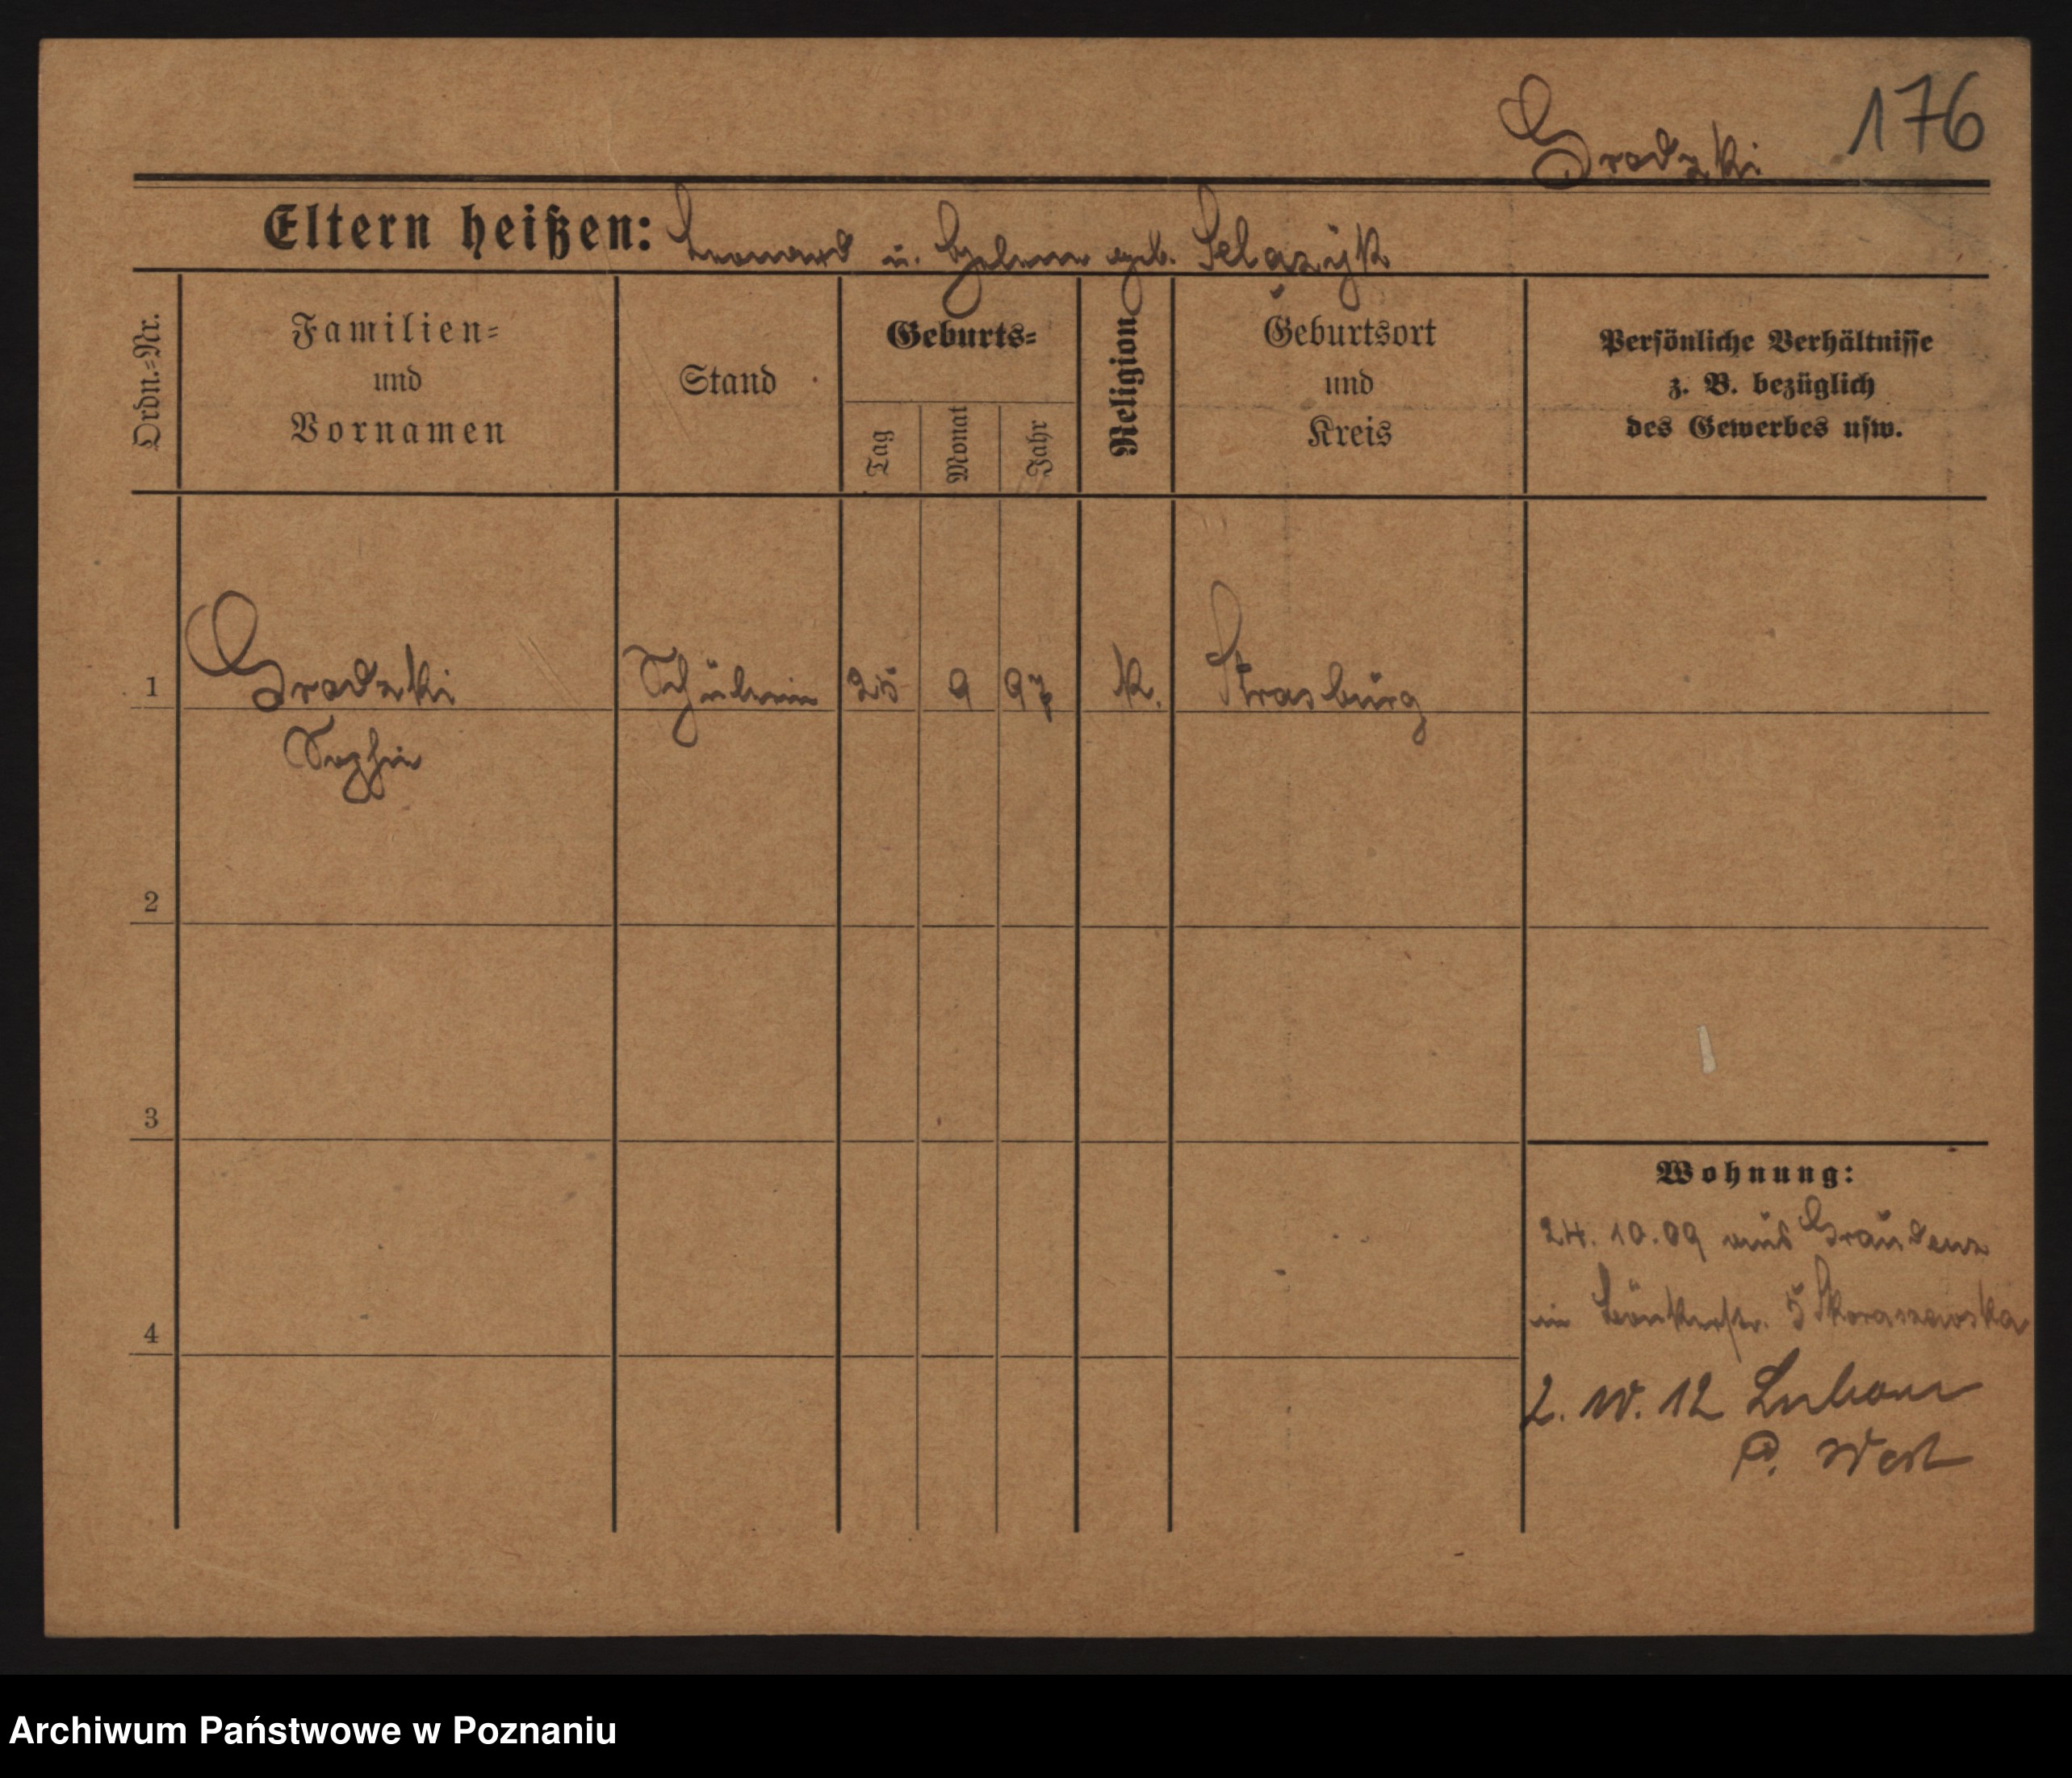 Grodzki 176
Eltern heißen: Leonard u. Helene geb.
Ordn.=Nr.
Familien=
und
Vornamen
Stand
Geburts=
Tag
Monat
Jahr
Religion
Geburtsort
und
Kreis
Persönliche Verhältnisse
z. B. bezüglich
des Gewerbes usw.
1 Grodzki Schülerin 25 9 97 K. Strasburg
Sophie
2
3
Wohnung:
24.10.09 aus Graudenz
in 5 Skoraszewska
4
2. IV. 12
P. West
Archiwum Państwowe w Poznaniu